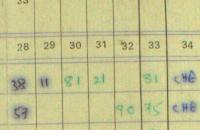 33
28 29 30 31 32 33 34
38 11 81 21 81 CHE
57 90 75 CHE